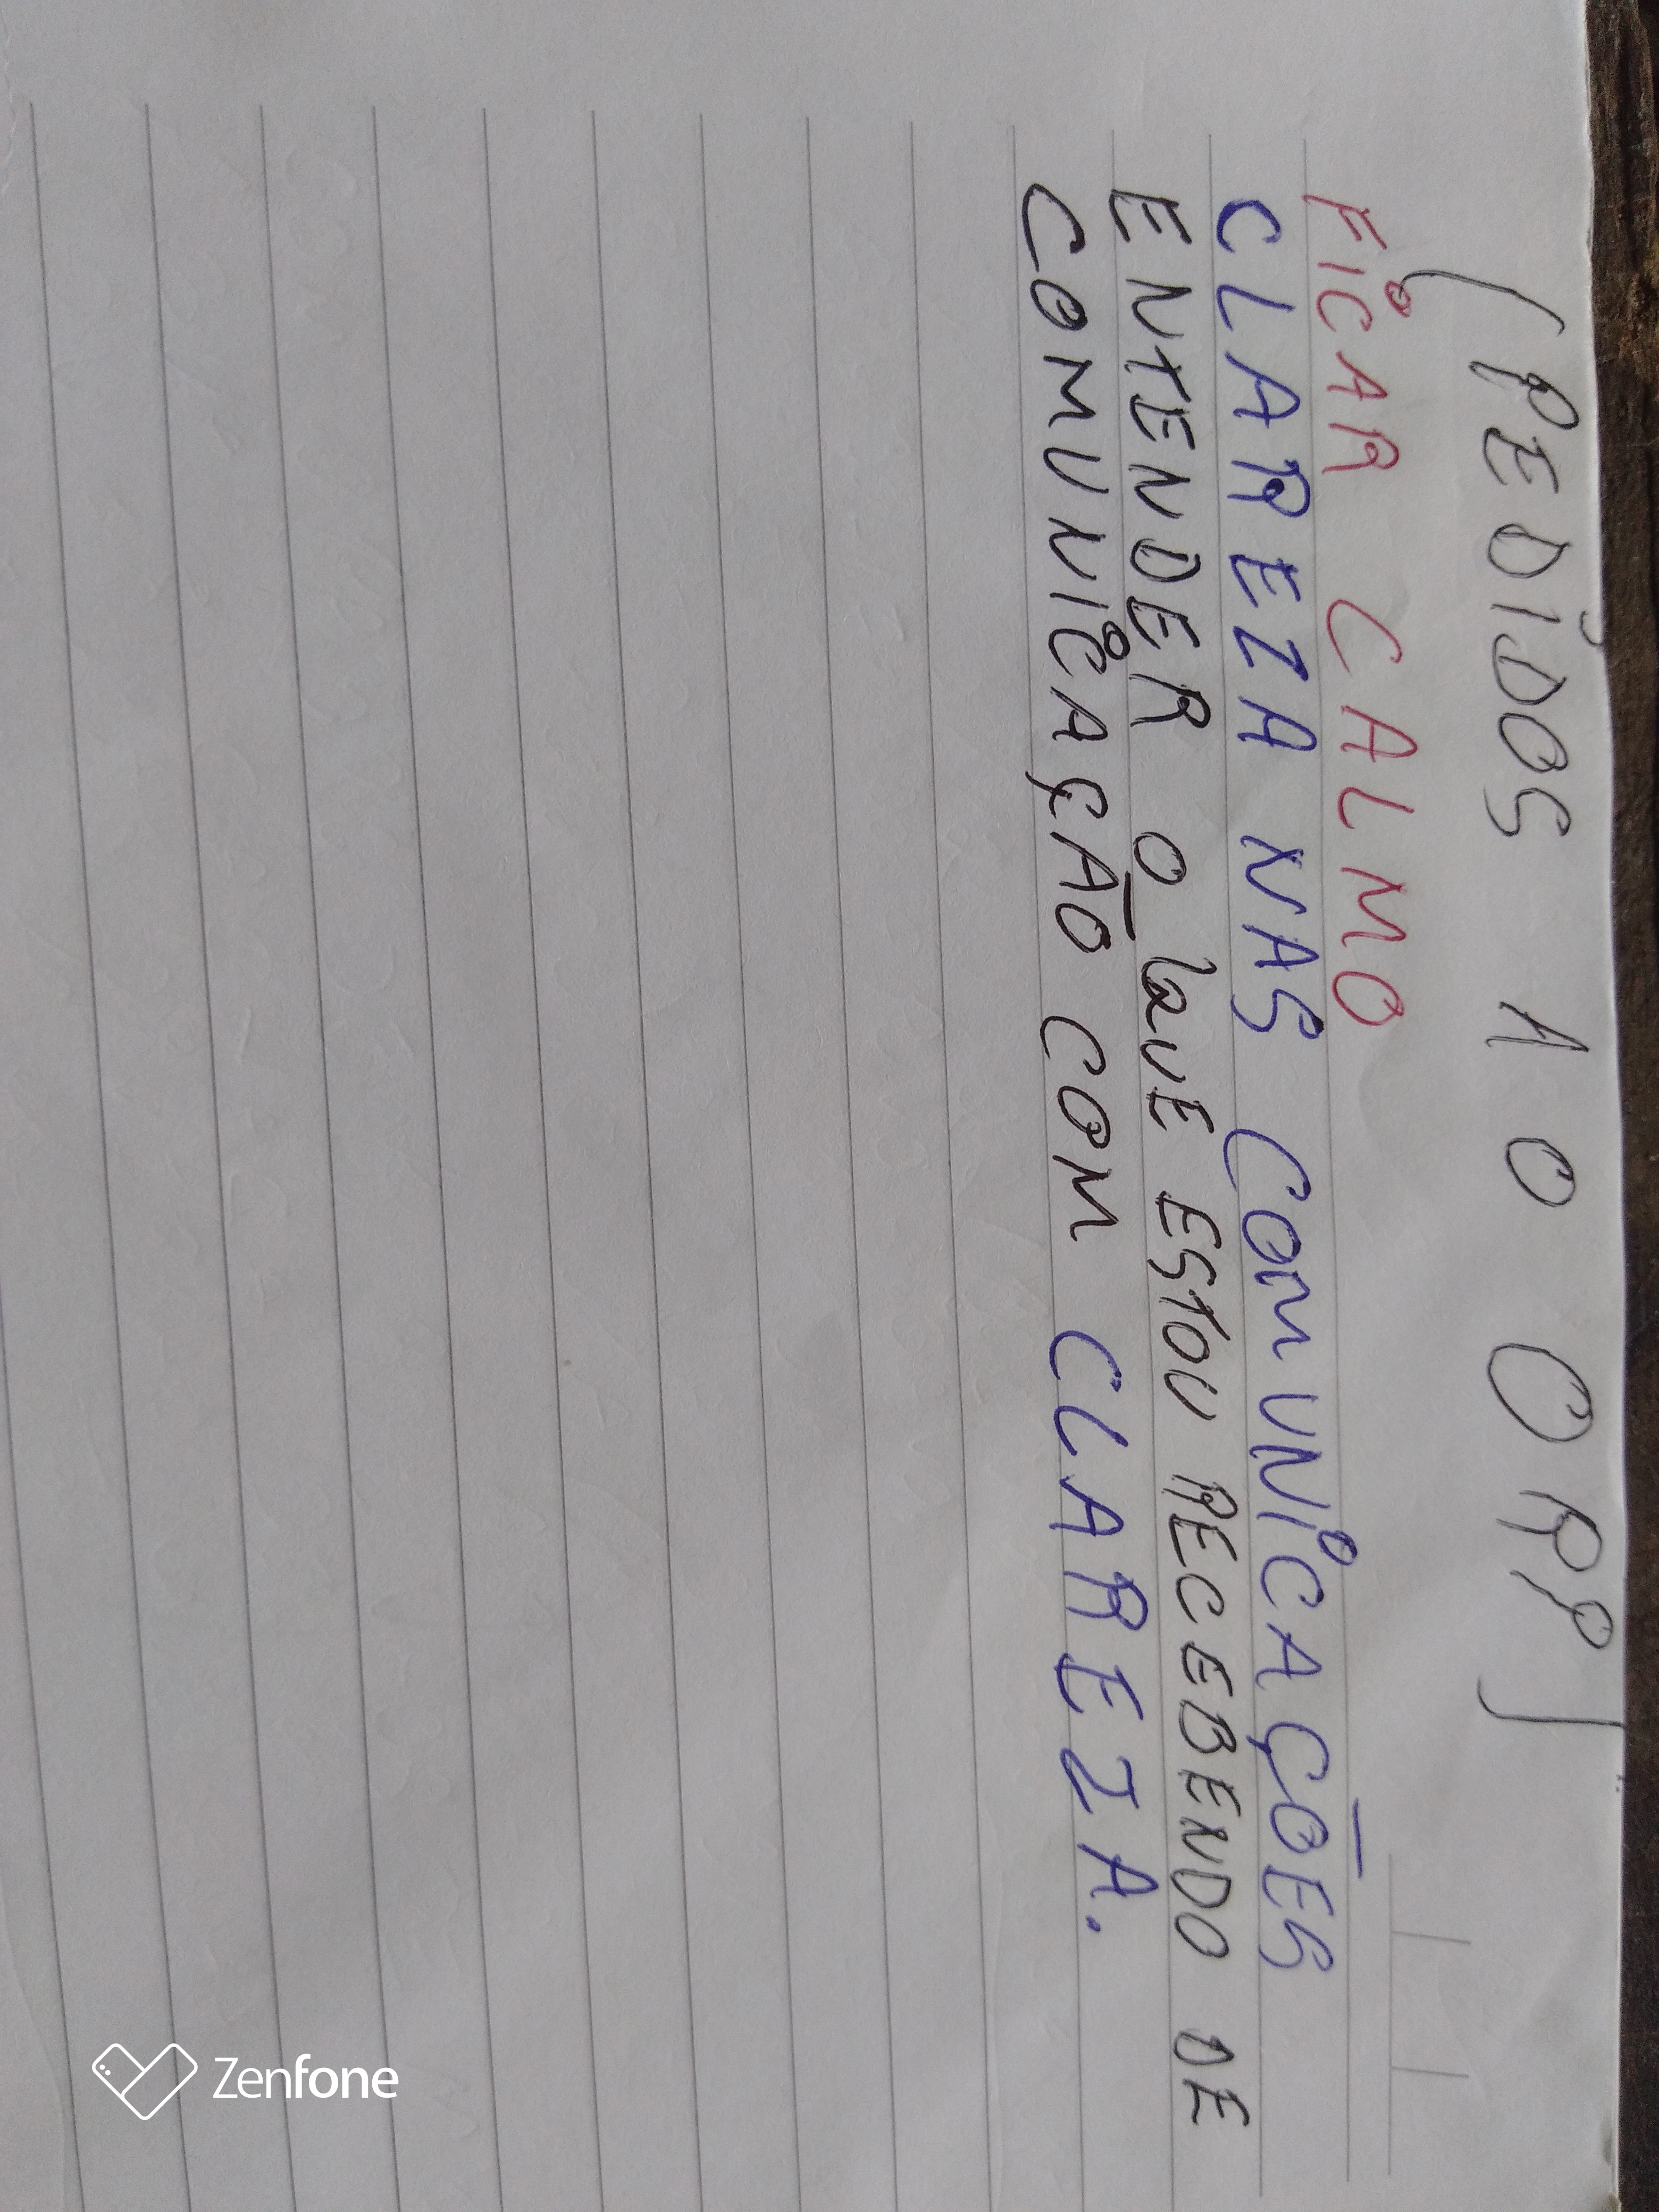 (PEDIDOS AO ORP)
FICAR CALMO
CLAREZA NAS COMUNICAÇÕES
ENTENDER O QUE ESTOU RECEBENDO DE
COMUNICAÇÃO COM CLAREZA.
Zenfone